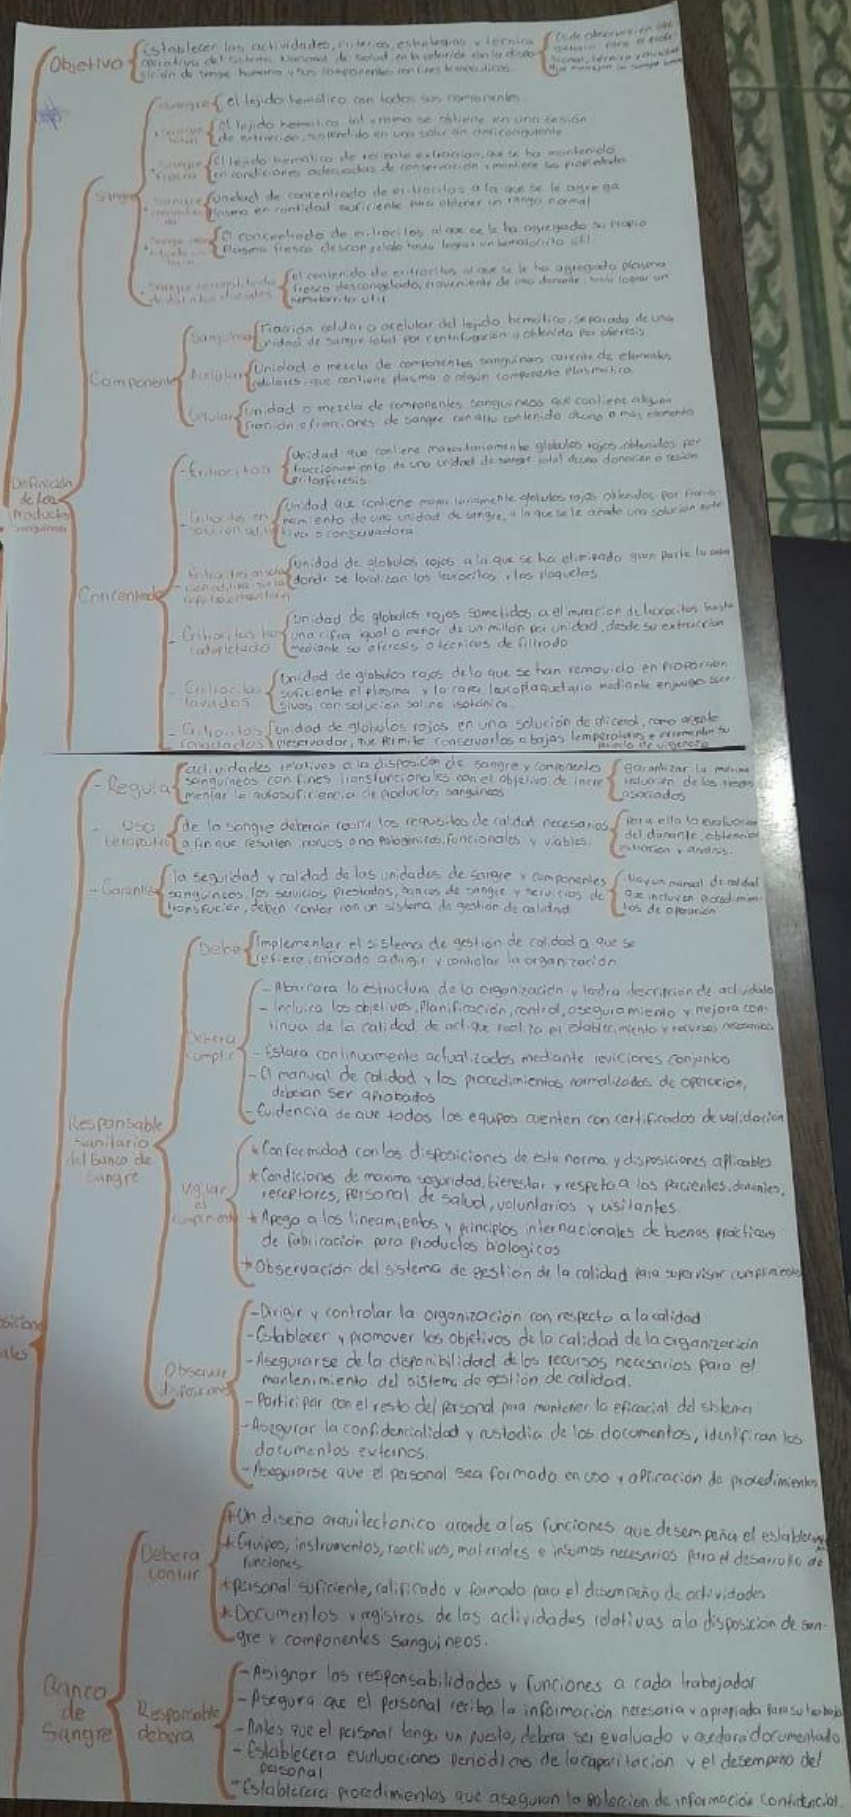 Objetivo
Establecer las actividades, criterios, estrategias y técnicas
operativas del Sistema Nacional de salud, en la relación con la dispo-
sición de sangre humana y sus componentes con fines terapéuticos
Definición
de los
Productos
sanguineos
Sangre
Sangre
el tejido hemático con todos sus componentes.
Sangre
total
El tejido hematico tal como se obtiene en una sesión
de extracción, suspendido en una solución anticoagulante
Sangre
fresca
El tejido hematico de reciente extracción, que se ha mantenido
en condiciones adecuadas de conservación y mantiene sus propiedades
Sangre
unidad de concentrado de eritrocitos a la que se le agrega
plasma en cantidad suficiente para obtener un rango normal
Sangre
El concentrado de eritrocitos al que se le ha agregado su propio
Plasma fresco descongelado hasta lograr un hematocrito útil
Sangre reconstituida
de distintos donantes
el contenido de eritrocitos al que se le ha agregado plasma
fresco descongelado, proveniente de otro donante, hasta lograr un
hematocrito útil
Componente
Sanguineo
Fracción celular o acelular del tejido hemático, separado de una
unidad de sangre total por centrifugación u obtenida por aféresis
Acelular
Unidad o mezcla de componentes sanguineos carente de elementos
celulares, que contiene plasma o algún componente plasmático.
Celular
Unidad o mezcla de componentes sanguineos que contiene alguna
fracción o fracciones de sangre con alto contenido de uno o mas elementos
Concentrado
- Eritrocitos
Unidad que contiene mayoritariamente globulos rojos, obtenidos por
fraccionamiento de una unidad de sangre total de una donación o sesión
eritroféresis.
- Eritrocitos en
solución aditiva
Unidad que contiene mayoritariamente globulos rojos obtenidos por fraccio-
namiento de una unidad de sangre, a la que se le añade una solución adi-
tiva o conservadora.
Unidad de globulos rojos a la que se ha eliminado gran parte la capa
donde se localizan los leucocitos y las plaquetas.
- Eritrocitos leu
coreducidos
Unidad de globulos rojos sometidos a eliminación de leucocitos hasta
una cifra igual o menor de un millón por unidad, desde su extracción
mediante su aferesis o técnicas de filtrado
- Eritrocitos
lavados
Unidad de globulos rojos de la que se han removido en proporción
suficiente el plasma y la capa leucoplaquetaria mediante enjuagues suce-
sivos con solución salina isotónica.
- Eritrocitos
congelados
Unidad de globulos rojos en una solución de glicerol, como agente
preservador, que permite conservarlos a bajas temperaturas e incrementan su
periodo de vigencia
- Regula
actividades relativos a la disposición de sangre y componentes
sanguineos con fines transfuncionales con el objetivo de incre
mentar la autosuficiencia de productos sanguineos
garantizar la maxima
reducción de los riesgos
asociados
- Uso
terapeutico
de la sangre deberán reunir los requisitos de calidad necesarios
a fin que resulten inocuos o no patogenicos, funcionales y viables.
Para ello la evaluacion
del donante, obtencion
extracción y analisis.
- Garantiza
la seguridad y calidad de las unidades de sangre y componentes
sanguineos, los servicios prestados, bancos de sangre y servicios de
transfución, deben contar con un sistema de gestión de calidad
Hay un manual de calidad
que incluyen procedimien-
tos de operación
Responsable
sanitario
del banco de
Sangre
Debe
Implementar el sistema de gestion de calidad a que se
refiere, enforado a dirigir y controlar la organización
Debera
cumplir
- Abarcara la estructura de la organización y tendra descripción de actividades
- Incluira los objetivos, Planificación, control, aseguramiento y mejora con-
tinua de la calidad de act. que realiza el establecimiento y recursos necesarios
- Estara continuamente actualizados mediante reviciones conjuntas
- El manual de calidad y los procedimientos normalizados de operación,
deberan ser aprobados
- Evidencia de que todos los equipos cuenten con certificados de validación
Vigilar
el
cumplimiento
* Conformidad con las disposiciones de esta norma y disposiciones aplicables
* Condiciones de maxima seguridad, bienestar y respeto a los pacientes, donantes,
receptores, personal de salud, voluntarios y visitantes.
* Apego a los lineamientos y principios internacionales de buenas prácticas
de fabricación para productos biologicos
* Observación del sistema de gestión de la calidad para supervisar cumplimiento
Observar
disposiciones
- Dirigir y controlar la organización con respecto a la calidad
- Establecer y promover los objetivos de la calidad de la organización
- Asegurarse de la disponibilidad de los recursos necesarios para el
mantenimiento del sistema de gestión de calidad.
- Participar con el resto del personal para mantener la eficacia del sistema
- Asegurar la confidencialidad y custodia de los documentos, identifican los
documentos externos.
- Asegurarse que el personal sea formado en uso y aplicación de procedimientos
Banco
de
Sangre
Debera
contar
* Un diseño arquitectonico acorde a las funciones que desempeña el establecimiento
* Equipos, instrumentos, reactivos, materiales e insumos necesarios para el desarrollo de
funciones
* personal suficiente, calificado y formado para el desempeño de actividades
* Documentos y registros de las actividades relativas a la disposición de san-
gre y componentes sanguineos.
Responsable
debera
- Asignar las responsabilidades y funciones a cada trabajador
- Asegura que el personal reciba la información necesaria y apropiada para su trabajo
- Antes que el personal tenga un puesto, debera ser evaluado y quedara documentado
- Establecera evaluaciones periodicas de la capacitación y el desempeño del
personal
- Establecerá procedimientos que aseguran la protección de información confidencial.